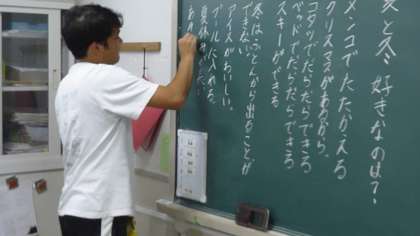 夏と冬 好きなのは?
メンコでたたかえる
クリスマスがあるから。
コタツでだらだらできる
ベッドでだらだらできる
スキーができる
冬はふとんから出ることが
できない。
アイスがおいしい。
プールに入れる。
夏休みが